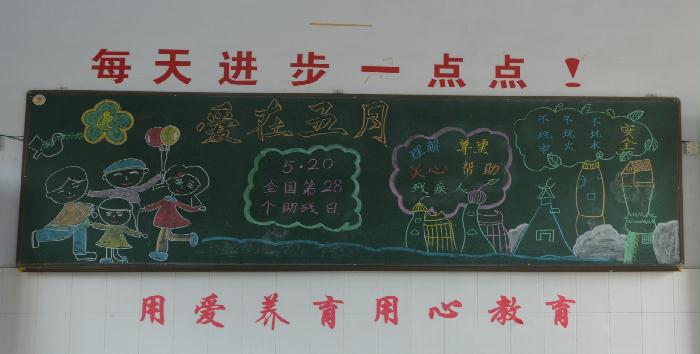 每天进步一点点！
爱在五月
5·20
全国第28
个助残日
理解 尊重
关心 帮助
残疾人
不玩电
不玩火
不玩水
安全
用爱养育用心教育